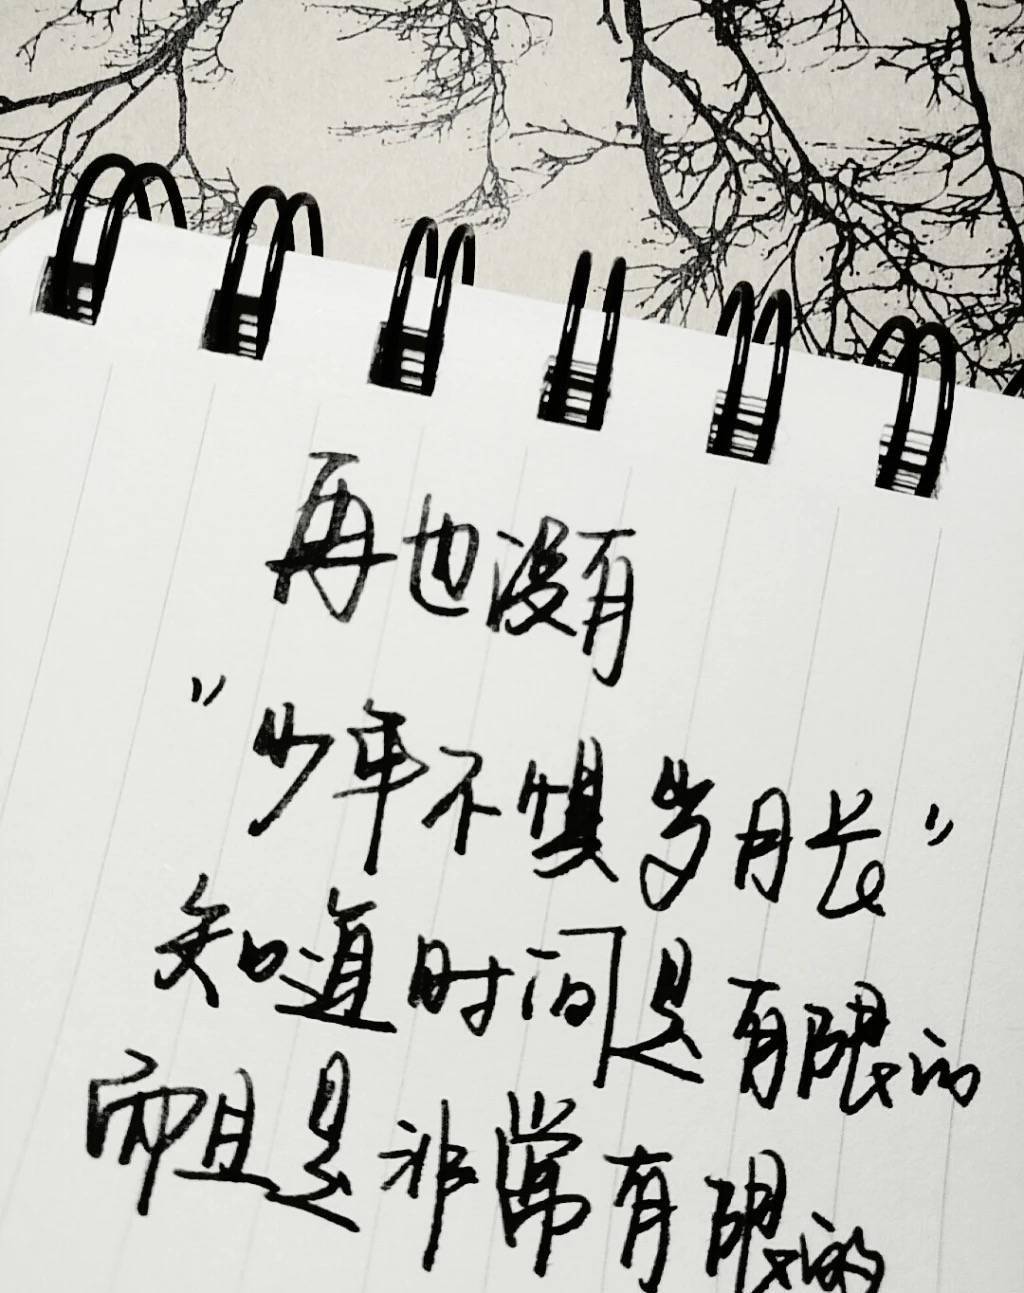 再也没有
"少年不惧岁月长"
知道时间是有限的
而且是非常有限的